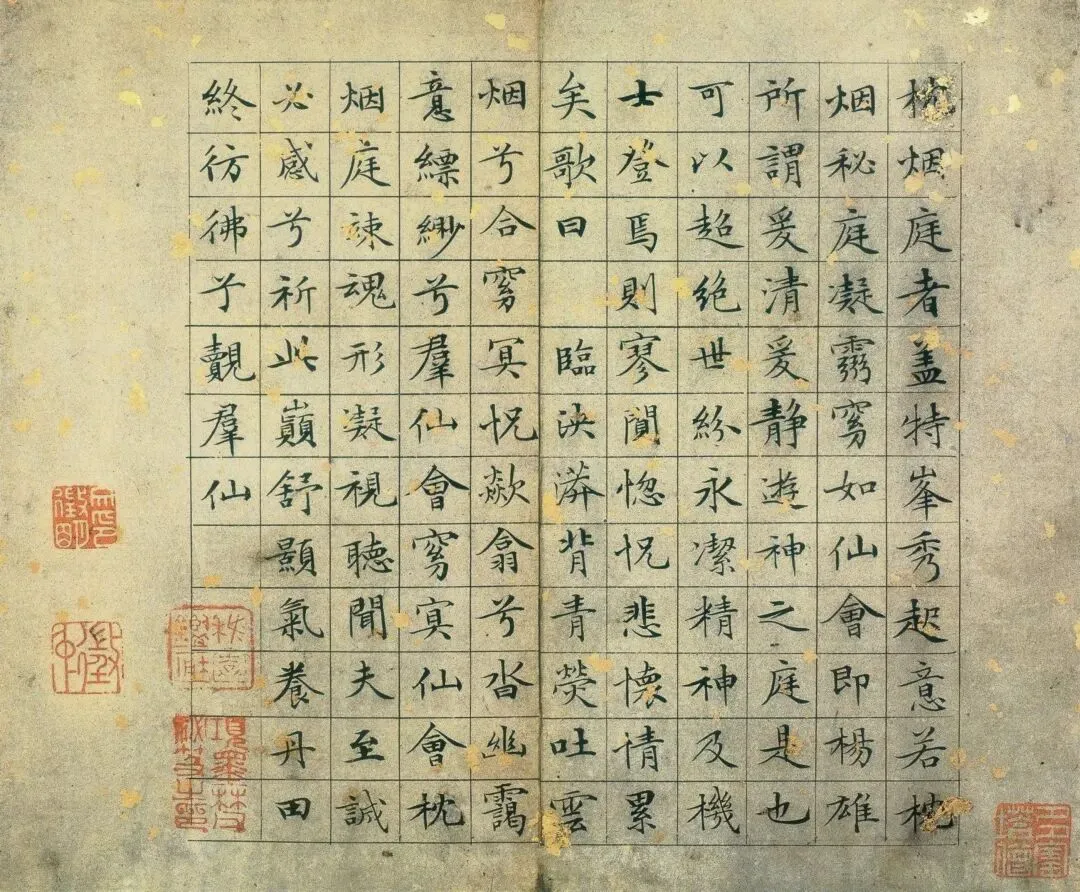 枕烟庭者盖特峯秀起意若枕
烟秘庭凝靈窅如仙會即楊雄
所謂爰清爰静遊神之庭是也
可以超絕世紛永潔精神及機
士登焉則寥閴惚怳悲懷情累
矣歌曰 臨泱漭背青熒吐雲
烟兮合窅冥怳欻翕兮沓幽靄
意縹緲兮羣仙會窅冥仙會枕
烟庭竦魂形凝視聽聞夫至誠
必感兮祈此巔舒顥氣養丹田
終彷彿兮覿羣仙
項墨林父秘笈之印